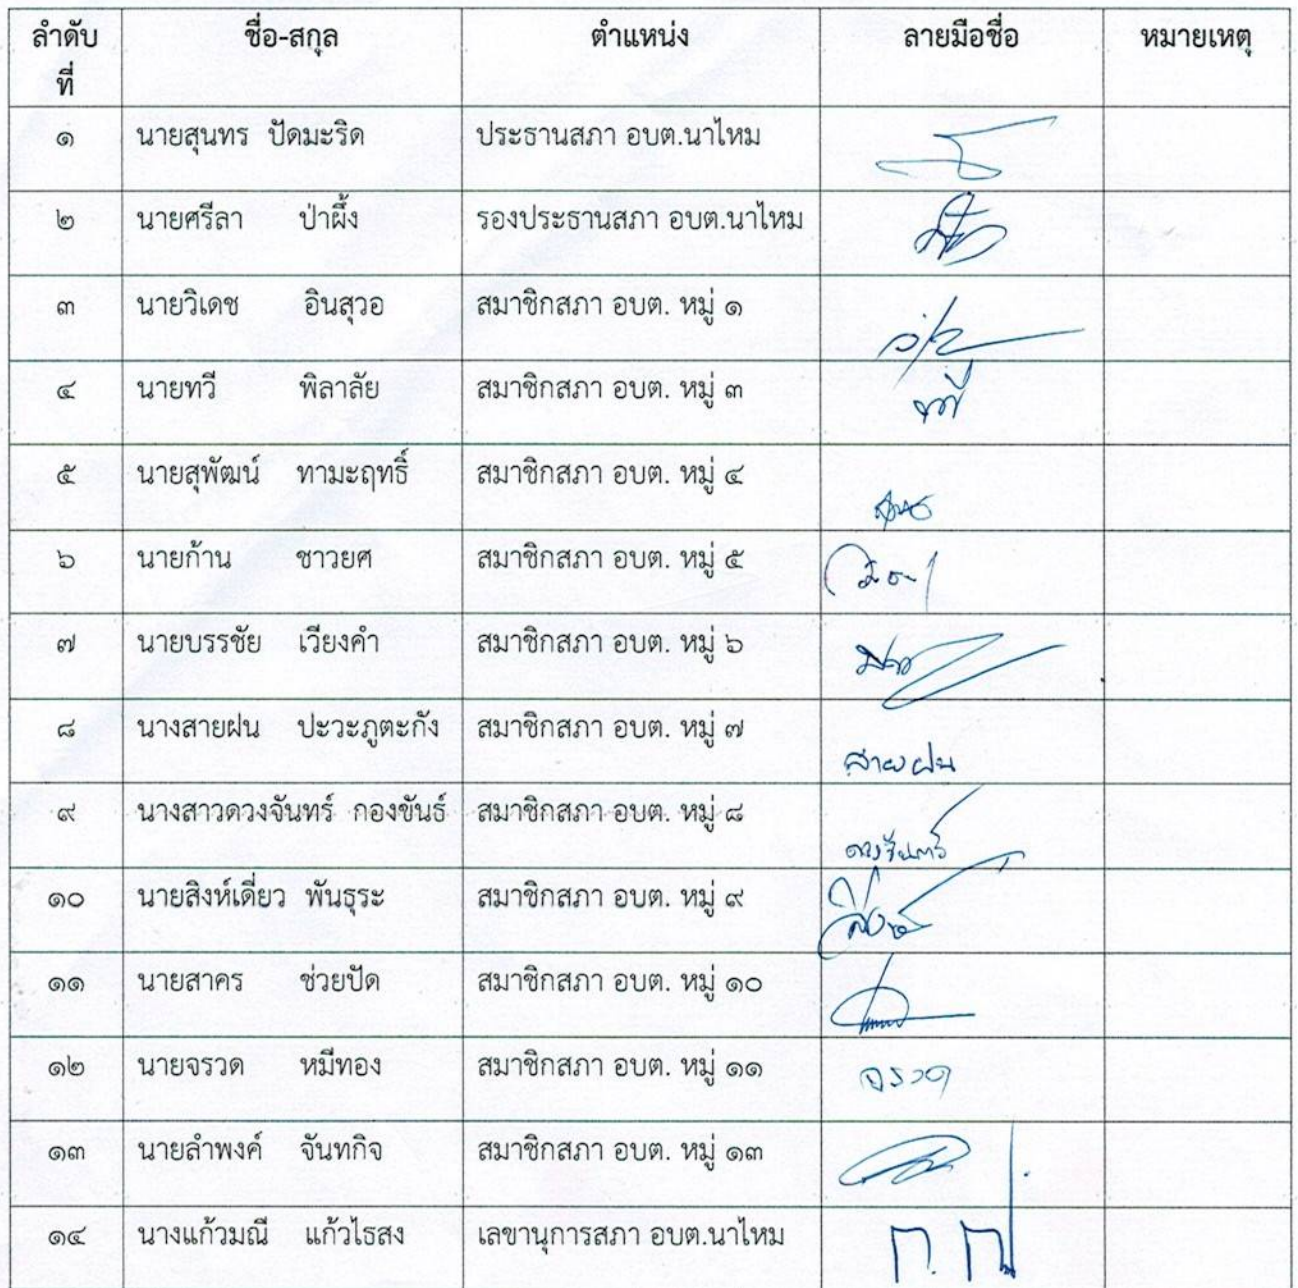 ลำดับที่ ชื่อ-สกุล ตำแหน่ง ลายมือชื่อ หมายเหตุ
๑ นายสุนทร ปัดมะริด ประธานสภา อบต.นาไหม
๒ นายศรีลา ป่าผึ้ง รองประธานสภา อบต.นาไหม
๓ นายวิเดช อินสุวอ สมาชิกสภา อบต. หมู่ ๑
๔ นายทวี พิลาลัย สมาชิกสภา อบต. หมู่ ๓ ทวี
๕ นายสุพัฒน์ ทามะฤทธิ์ สมาชิกสภา อบต. หมู่ ๔
๖ นายก้าน ชาวยศ สมาชิกสภา อบต. หมู่ ๕
๗ นายบรรชัย เวียงคำ สมาชิกสภา อบต. หมู่ ๖
๘ นางสายฝน ปะวะภูตะกัง สมาชิกสภา อบต. หมู่ ๗ สายฝน
๙ นางสาวดวงจันทร์ กองขันธ์ สมาชิกสภา อบต. หมู่ ๘ ดวงจันทร์
๑๐ นายสิงห์เดี่ยว พันธุระ สมาชิกสภา อบต. หมู่ ๙ สิงห์
๑๑ นายสาคร ช่วยปัด สมาชิกสภา อบต. หมู่ ๑๐
๑๒ นายจรวด หมีทอง สมาชิกสภา อบต. หมู่ ๑๑ จรวด
๑๓ นายลำพงค์ จันทกิจ สมาชิกสภา อบต. หมู่ ๑๓
๑๔ นางแก้วมณี แก้วไธสง เลขานุการสภา อบต.นาไหม